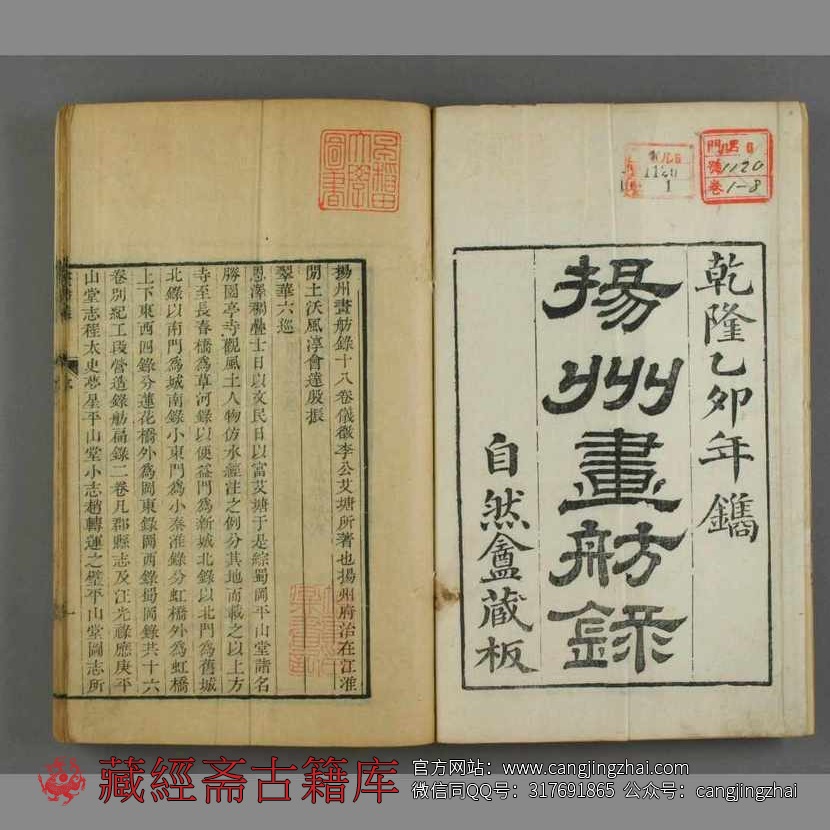 乾隆乙卯年鐫
揚州畫舫錄
自然盦藏板
門 呂 6
號 1120
卷 1-8
1120
1
早稻田
大學
圖書
揚州畫舫錄十八卷儀徵李公艾塘所著也揚州府治在江淮
間土沃風淳會達殷振
翠華六巡
恩澤稠疊士日以文民日以富艾塘于是綜蜀岡平山堂諸名
勝園亭寺觀風土人物仿水經注之例分其地而載之以上方
寺至長春橋為草河錄以便益門為新城北錄以北門為舊城
北錄以南門為城南錄小東門為小秦淮錄分虹橋外為虹橋
上下東西四錄分蓮花橋外為岡東錄岡西錄蜀岡錄共十六
卷別紀工段營造錄舫扁錄二卷凡郡縣志及汪光祿應庚平
山堂志程太史夢星平山堂小志趙轉運之璧平山堂圖志所
藏經斋古籍库
官方网站：www.cangjingzhai.com
微信同QQ号：317691865 公众号：cangjingzhai